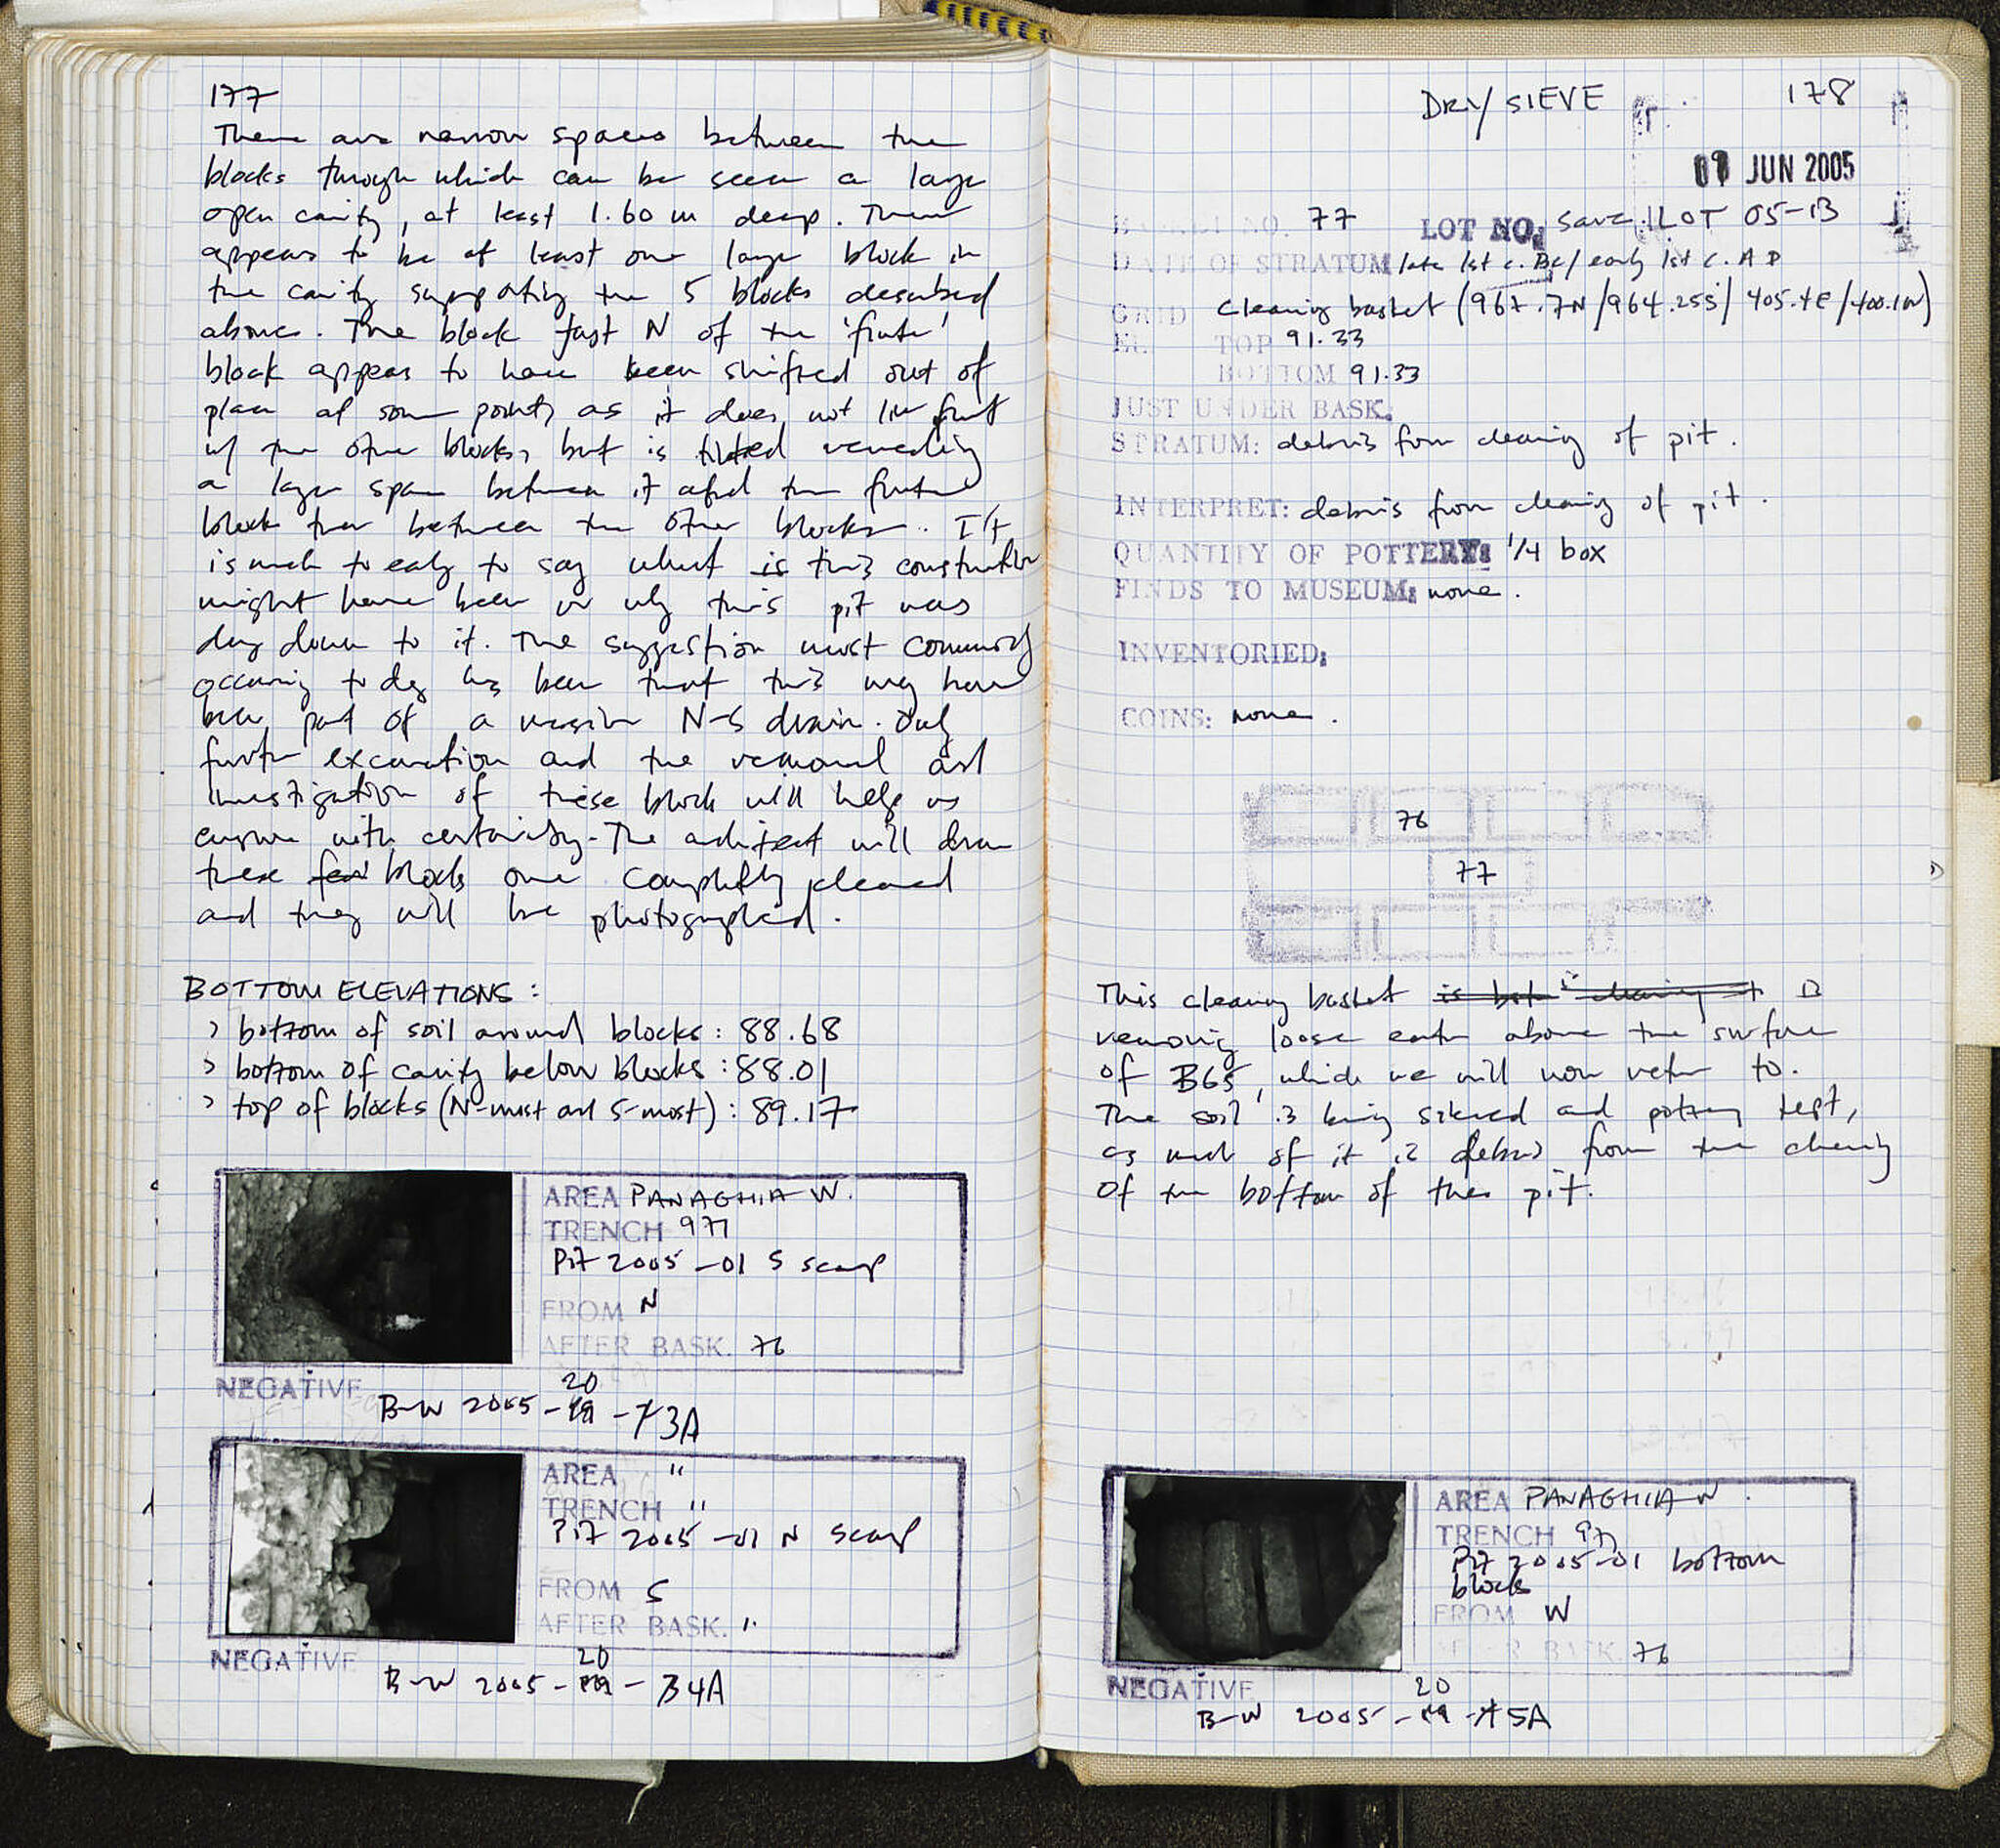 177
There are narrow spaces between the
blocks through which can be seen a large
open cavity, at least 1.60 m deep. There
appears to be at least one large block in
the cavity supporting the 5 blocks described
above. The block just N of the 'finte'
block appears to have been shifted out of
place at some point, as it does not lie flat
w/ the other blocks, but is tilted revealing
a larger space between it and the
block than between the other blocks. It
is much to early to say what is this construction
might have been or why this pit was
dug down to it. The suggestion most commonly
occuring today has been that this may have
been part of a massive N-S drain. Only
further excavation and the removal and
investigation of these block will help us
answer with certainty. The architect will draw
these few blocks once completely cleaned
and they will be photographed.
BOTTOM ELEVATIONS:
> bottom of soil around blocks: 88.68
> bottom of cavity below blocks: 88.01
> top of blocks (N-most and S-most): 89.17
AREA PANAGHIA W.
TRENCH 977
Pit 2005-01 S scarp
FROM N
AFTER BASK. 76
NEGATIVE
20
B-W 2005-19-3A
AREA "
TRENCH "
Pit 2005-01 N scarp
FROM S
AFTER BASK. "
NEGATIVE
20
B-W 2005-19-4A
DRY SIEVE 178
09 JUN 2005
BASKET NO. 77 LOT NO. save LOT 05-13
DATE OF STRATUM late 1st c. BC/ early 1st c. AD
GRID cleaning basket (967.7N/964.25S/405.4E/400.1W)
EL. TOP 91.33
BOTTOM 91.33
JUST UNDER BASK.
STRATUM: debris from cleaning of pit.
INTERPRET: debris from cleaning of pit.
QUANTITY OF POTTERY: 1/4 box
FINDS TO MUSEUM: none.
INVENTORIED:
COINS: none.
76
77
This cleaning basket is cleaning is
removing loose earth above the surface
of B65, which we will now return to.
The soil is being sieved and pottery kept,
as much of it is debris from the cleaning
of the bottom of the pit.
AREA PANAGHIA W.
TRENCH 977
Pit 2005-01 bottom
blocks
FROM W
AFTER BASK. 76
NEGATIVE
20
B-W 2005-19-5A